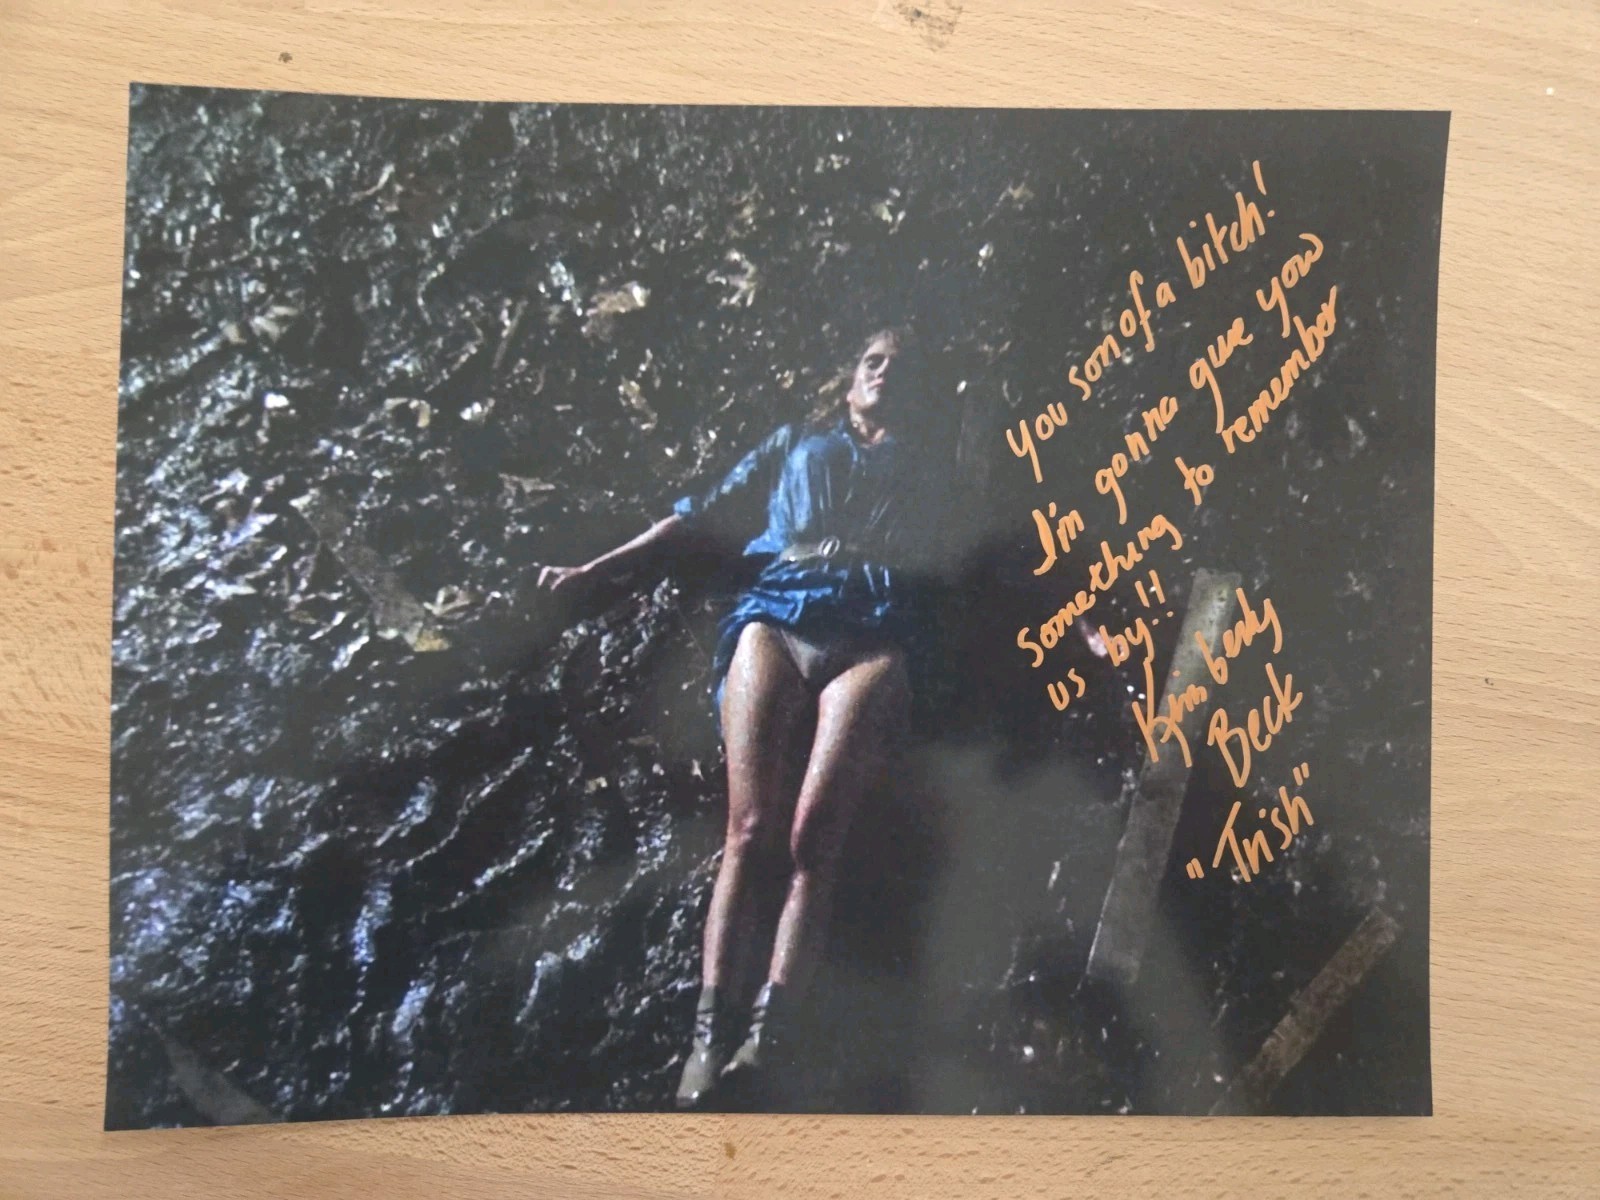 You son of a bitch!
I'm gonna give you
something to remember
us by!!
Kimberly
Beck
"Trish"